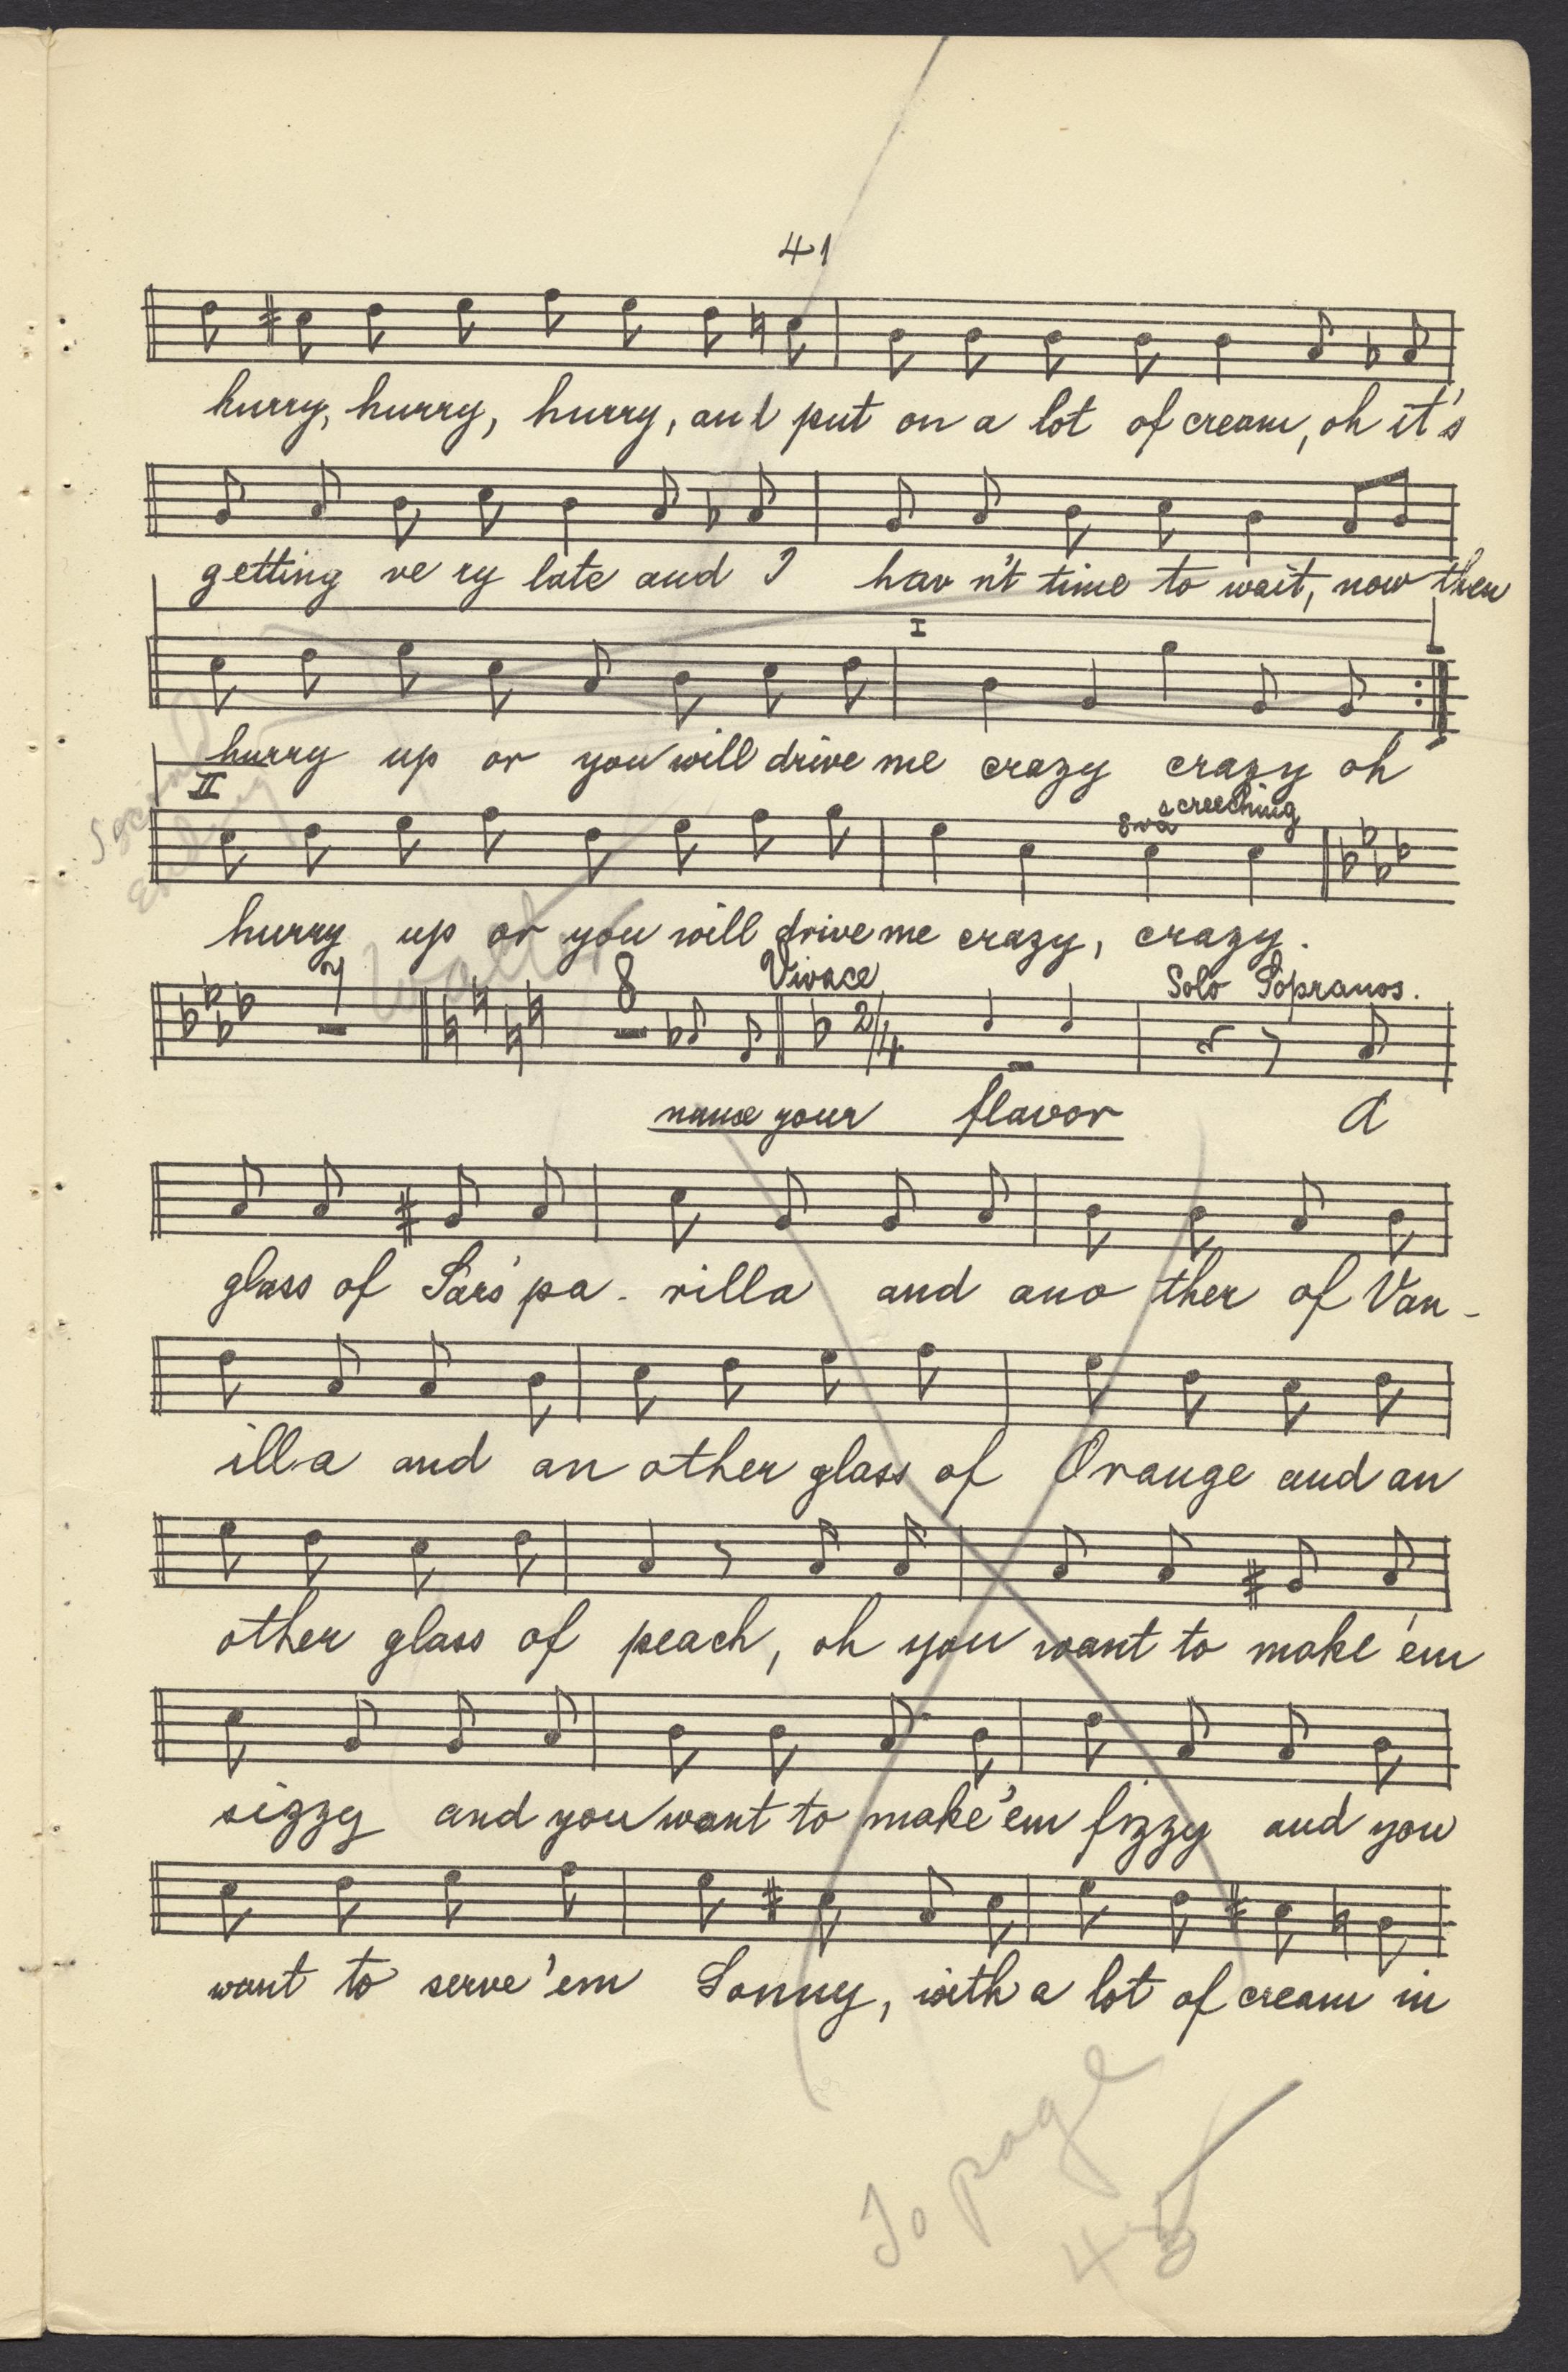 41
hurry, hurry, hurry, and put on a lot of cream, oh it's
getting ve ry late and I hav n't time to wait, now then
I
hurry up or you will drive me crazy crazy oh
II
Second
Ending
8va screeching
hurry up or you will drive me crazy, crazy.
7 Waltz 8 Vivace Solo Sopranos.
2/4
name your flavor A
glass of Sars'pa - rilla and ano ther of Van -
illa and an other glass of Orange and an
other glass of peach, oh you want to make 'em
sizzy and you want to make 'em fizzy and you
want to serve 'em Sonny, with a lot of cream in
To page